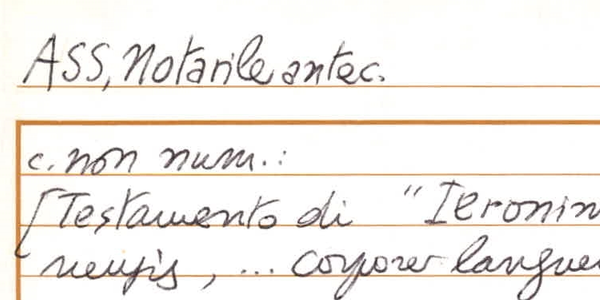 ASS, Notarile antec.
c. non num.:
[Testamento di "Ieronim
nensis, ... corpore langue